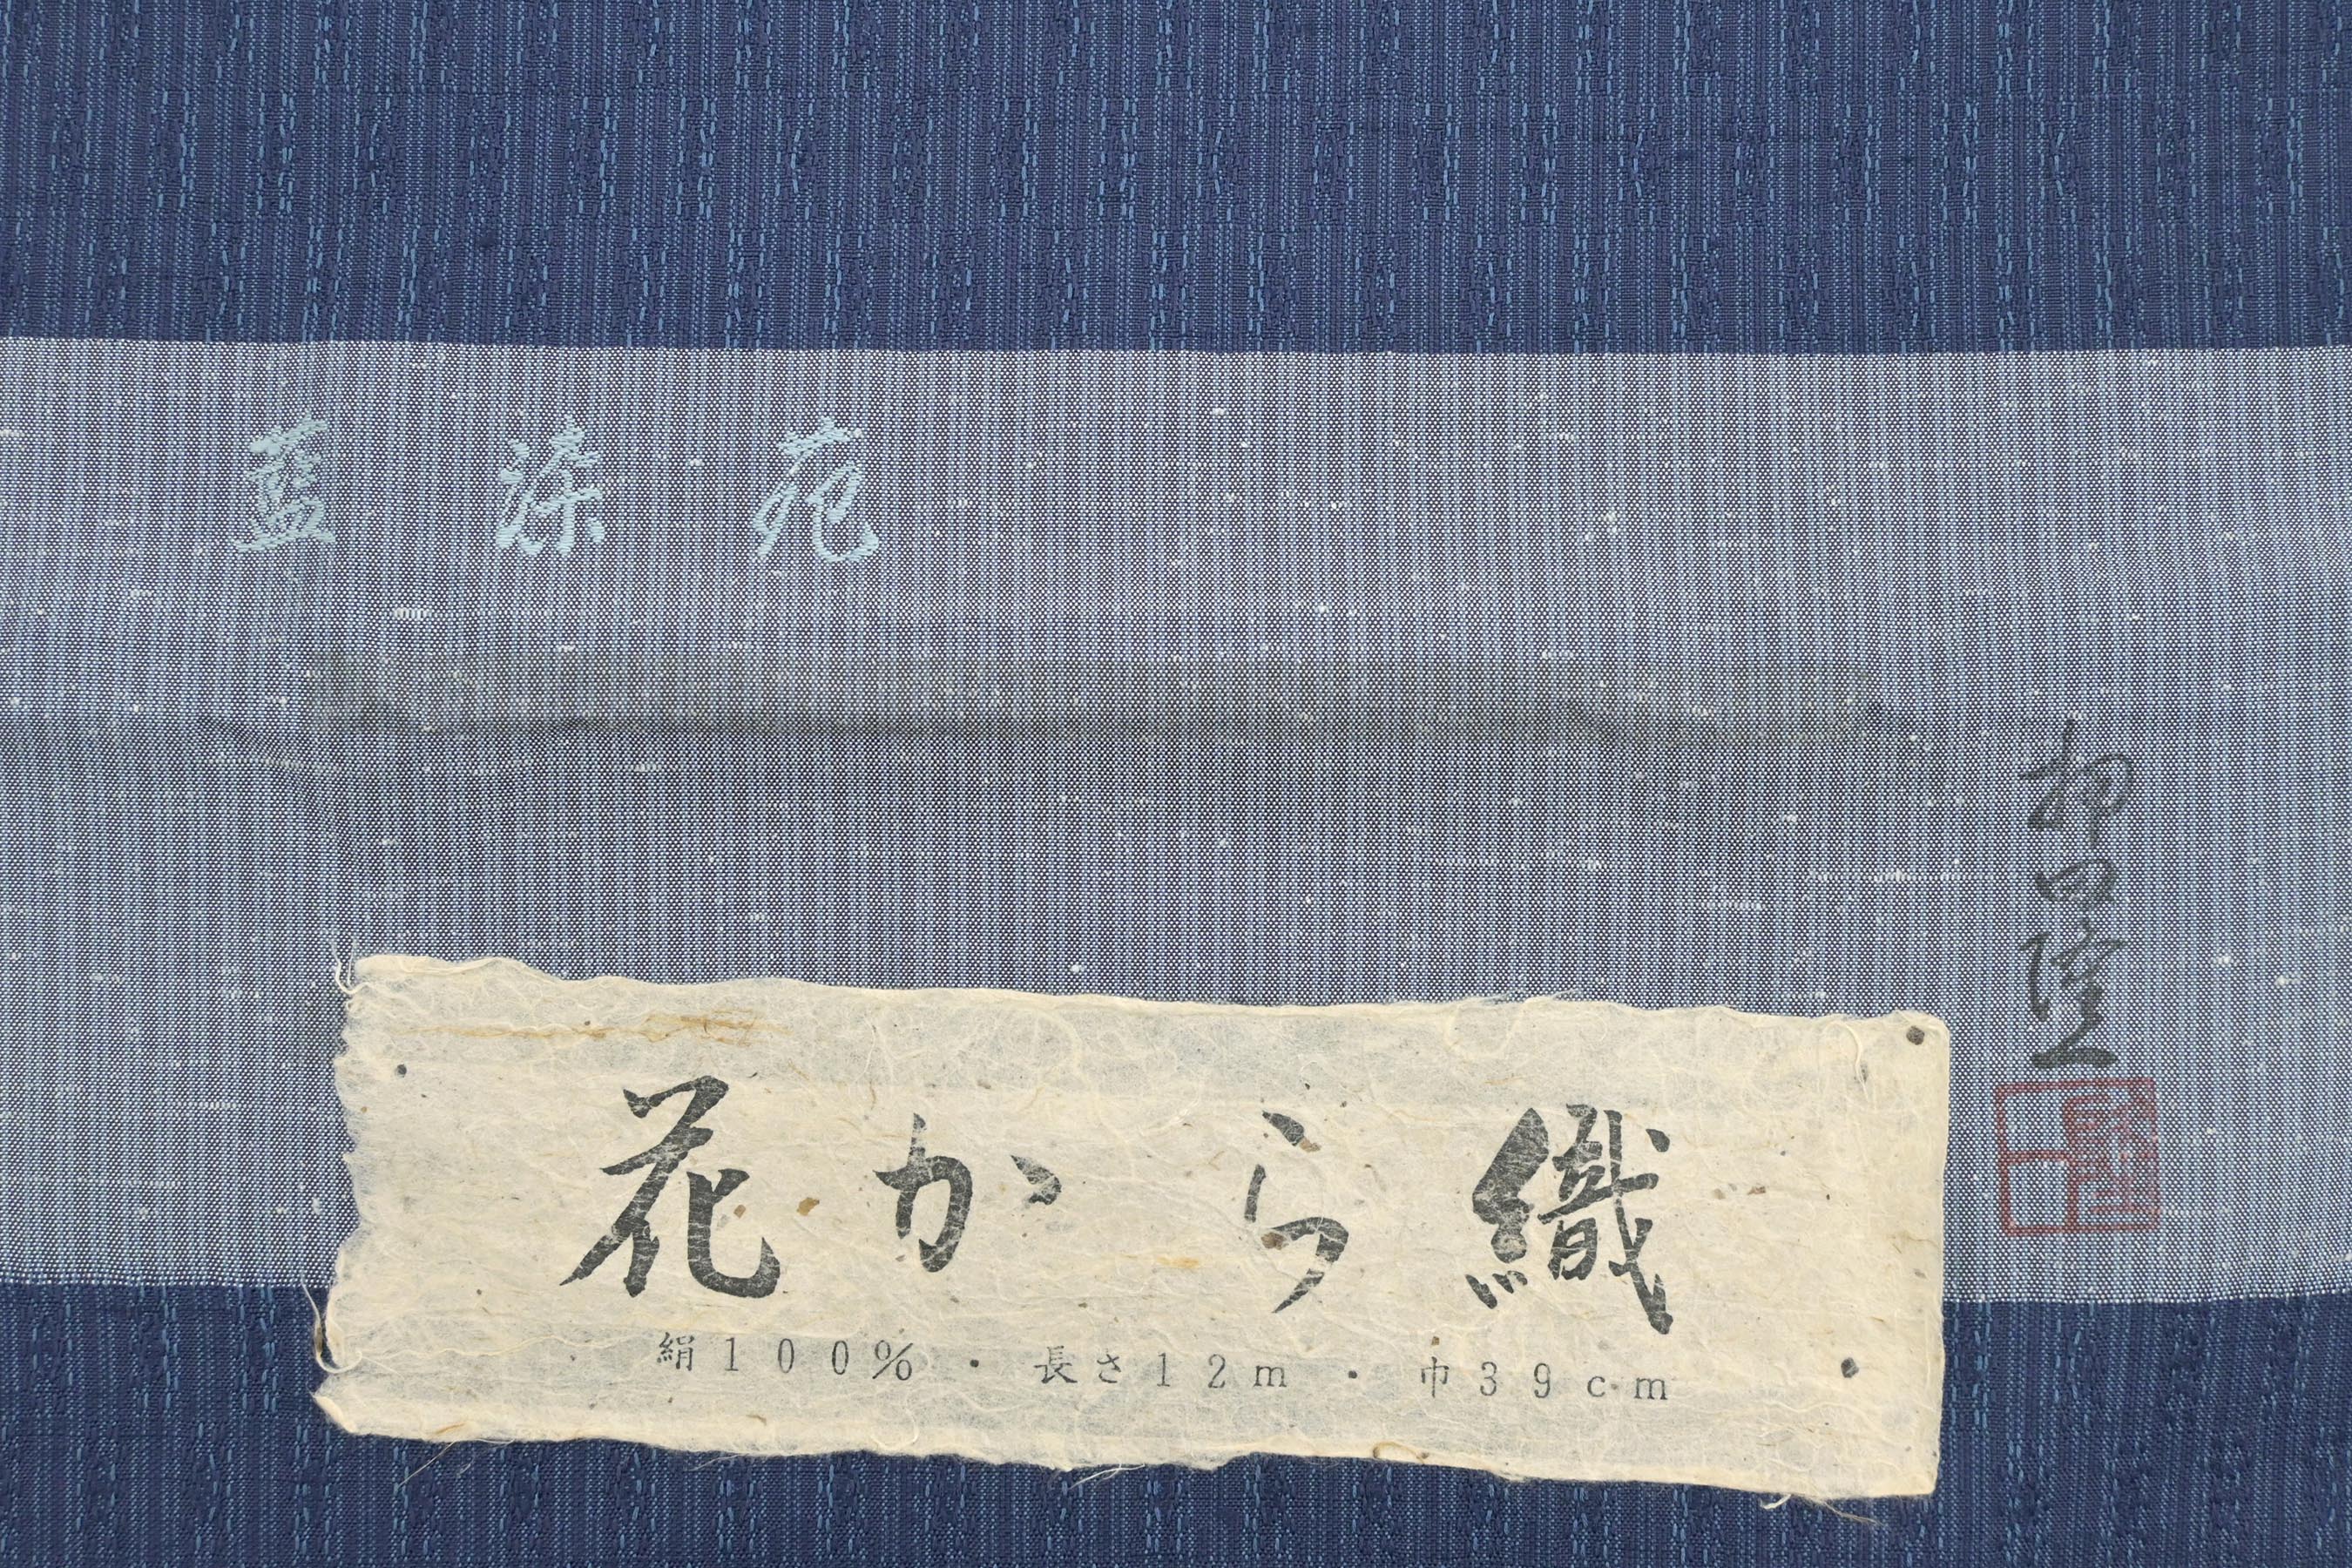 藍染苑
花から織
絹100%・長さ12m・巾39cm